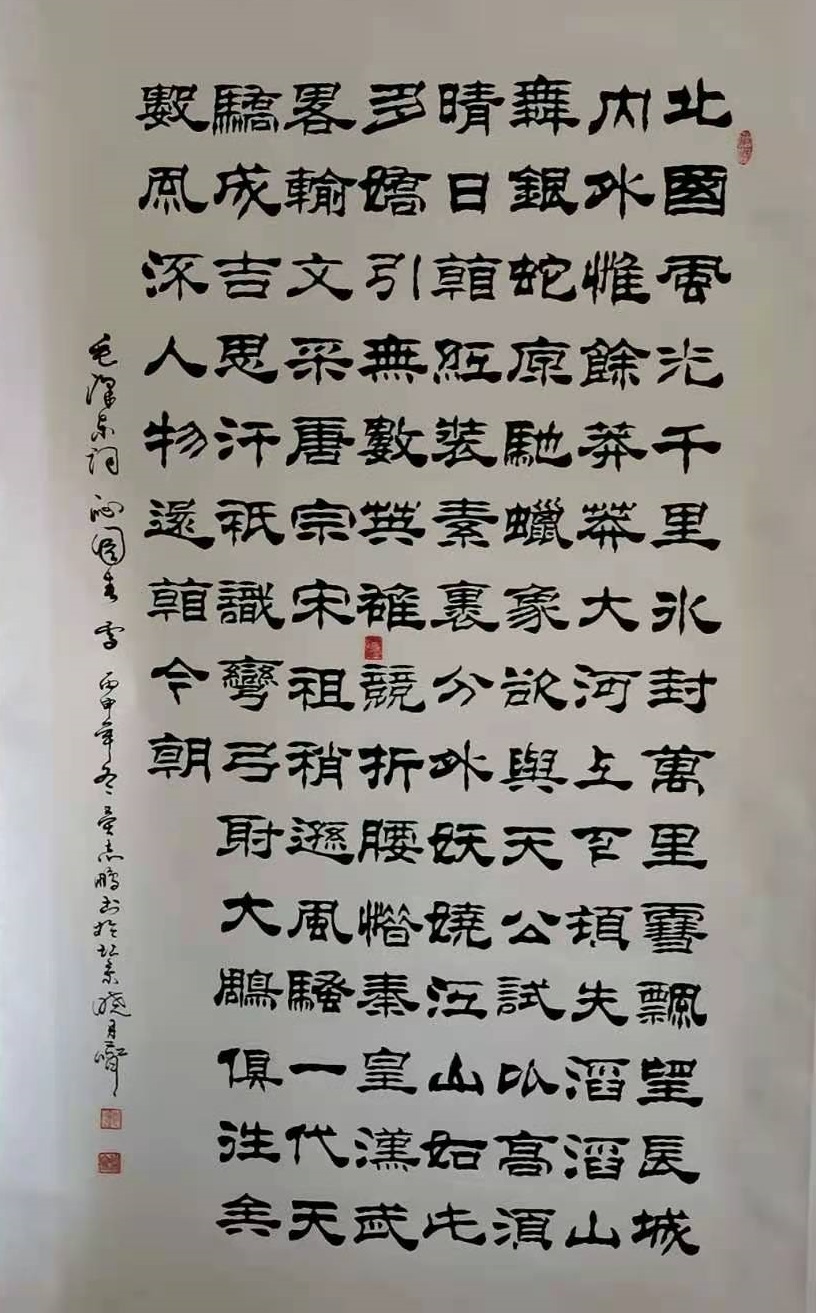 北國風光千里冰封萬里雪飄望長城
内外惟餘莽莽大河上下頓失滔滔山
舞銀蛇原馳蠟象欲與天公試以高須
晴日看紅裝素裹分外妖嬈江山如此
多嬌引無數英雄競折腰惜秦皇漢武
畧輸文采唐宗宋祖稍遜風騷一代天
驕成吉思汗祇識彎弓射大鵰俱往矣
數風流人物還看今朝
毛澤東詞 沁園春 雪 丙申年冬 志鵬書於北京曉月